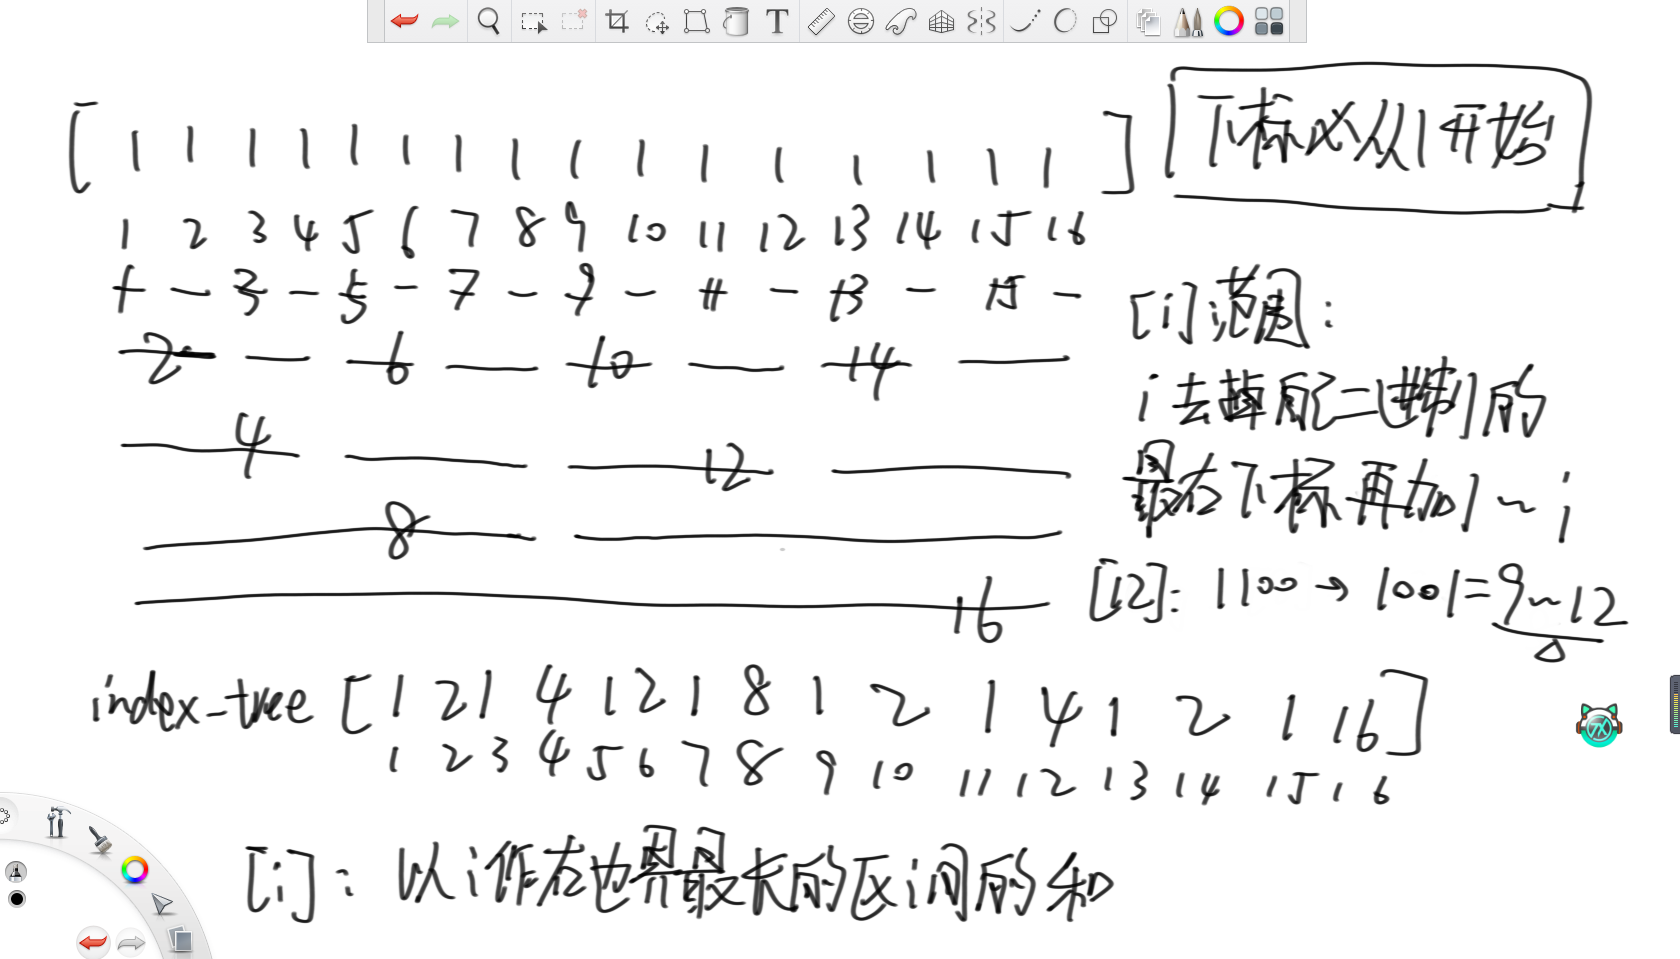 [ 1 1 1 1 1 1 1 1 1 1 1 1 1 1 1 1 ]
下标必从1开始
1 2 3 4 5 6 7 8 9 10 11 12 13 14 15 16
1 3 5 7 9 11 13 15
2 6 10 14
4 12
8
16
[i]范围:
i去掉二进制的
最右下标再加1~i
[12]: 1100→1001=9~12
index-tree [1 2 1 4 1 2 1 8 1 2 1 4 1 2 1 16]
1 2 3 4 5 6 7 8 9 10 11 12 13 14 15 16
[i]: 以i作右边界最长的区间的和
T
7X